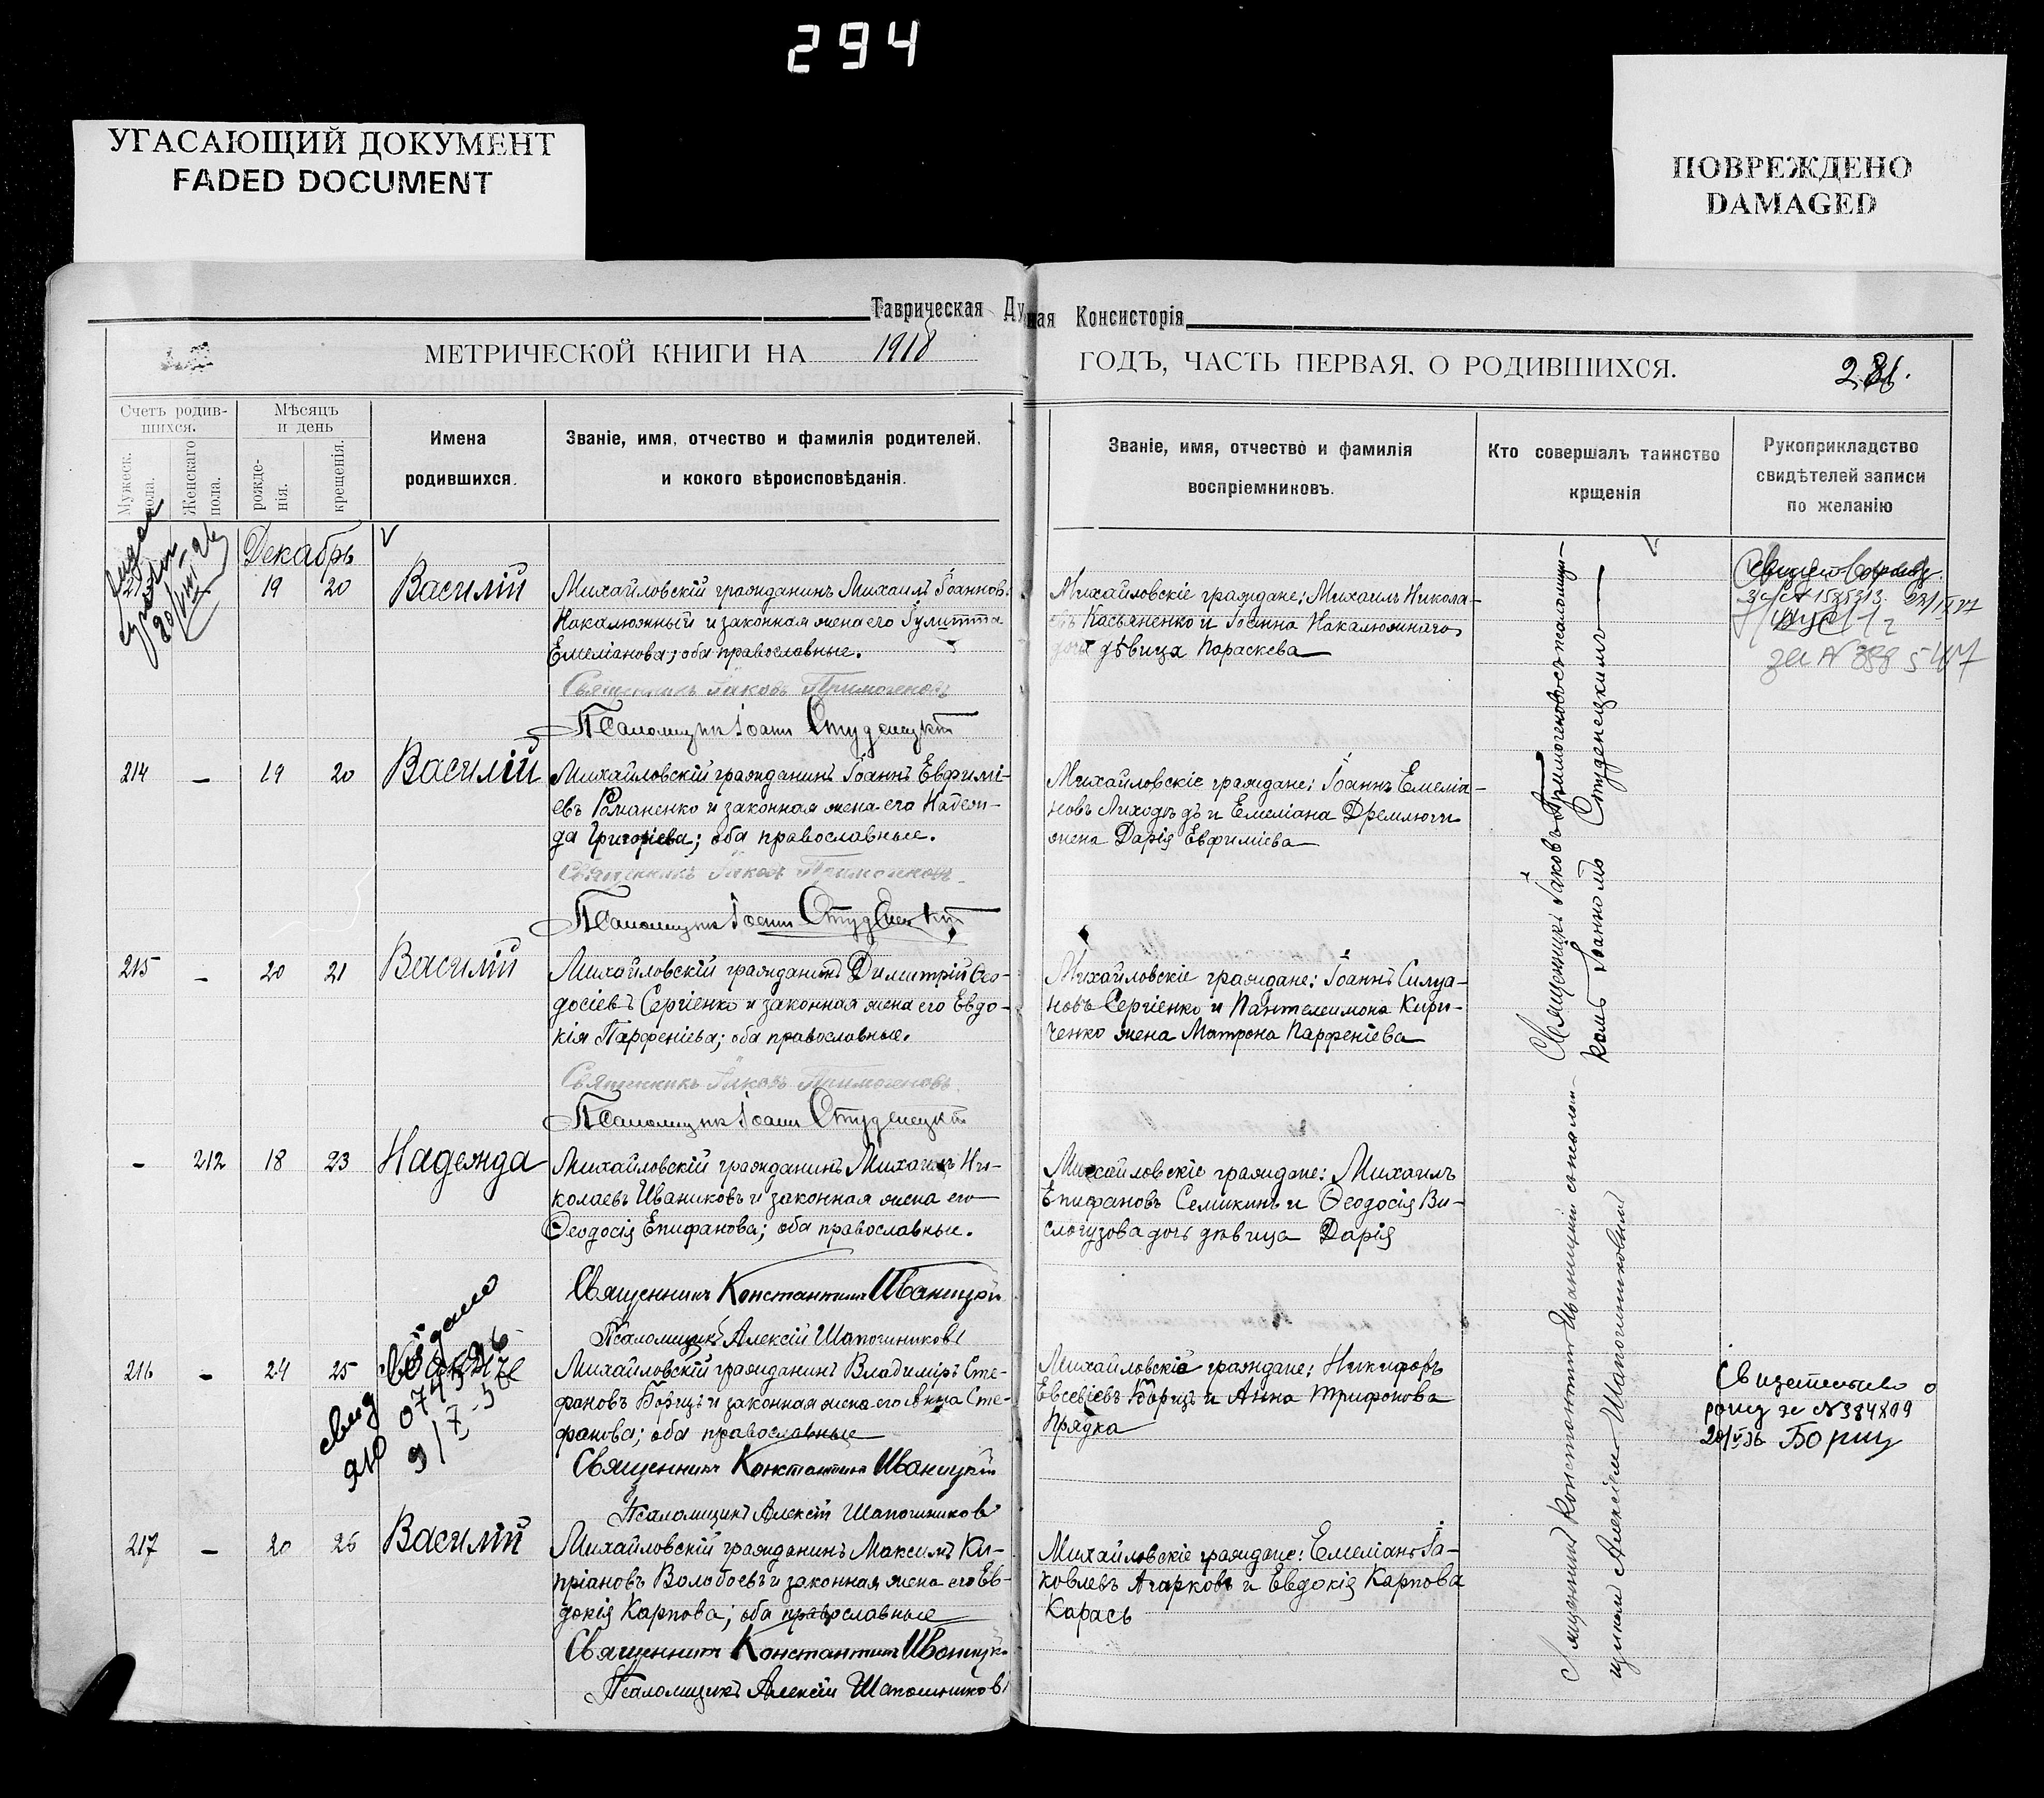 294
УГАСАЮЩИЙ ДОКУМЕНТ
FADED DOCUMENT
ПОВРЕЖДЕНО
DAMAGED
Таврическая Ду
ная Консисторія
МЕТРИЧЕСКОЙ КНИГИ НА 1918
ГОДЪ, ЧАСТЬ ПЕРВАЯ, О РОДИВШИХСЯ.
Счетъ родив-
шихся.
Мужеск.
пола.
Женскаго
пола.
Мѣсяцъ
и день
рожде-
нія.
крещенія.
Имена
родившихся.
Званіе, имя, отчество и фамилія родителей,
и кокого вѣроисповѣданія.
Званіе, имя, отчество и фамилія
воспріемниковъ.
Кто совершалъ таинство
крщенія
Рукоприкладство
свидѣтелей записи
по желанію
Декабрь
19 20 Василій
Михайловскій гражданинъ Михаилъ Іоаннов.
Накалюжный и законная жена его Іулитта
Емеліанова; оба православные.
Священникъ Іаковъ Примогеновъ
Псаломщикъ Іоаннъ Студенецкій
Михайловскіе граждане: Михаилъ Никола-
евъ Касьяненко и Іоанна Накалюжнаго
дочь дѣвица Параскева
214 — 19 20 Василій
Михайловскій гражданинъ Іоаннъ Евфимі-
евъ Романенко и законная жена его Надеж-
да Григоріева; оба православные.
Священникъ Іаковъ Примогеновъ
Псаломщикъ Іоаннъ Студенецкій
Михайловскіе граждане: Іоаннъ Емеліа-
новъ Лиходѣдъ и Емеліана Дремлюги
жена Дарія Евфиміева
215 — 20 21 Василій
Михайловскій гражданинъ Димитрій Ѳео-
досіевъ Сергіенко и законная жена его Евдо-
кія Парфеніева; оба православные.
Священникъ Іаковъ Примогеновъ
Псаломщикъ Іоаннъ Студенецкій
Михайловскіе граждане: Іоаннъ Силуа-
новъ Сергіенко и Пантелеимона Кири-
ченко жена Матрона Парфеніева
— 212 18 23 Надежда
Михайловскій гражданинъ Михаилъ Ни-
колаевъ Иваниковъ и законная жена его
Ѳеодосія Епифанова; оба православные.
Священникъ Константинъ Иваницкій
Псаломщикъ Алексій Шапошниковъ
Михайловскіе граждане: Михаилъ
Епифановъ Семикинъ и Ѳеодосія Ви-
слогузова дочь дѣвица Дарія
216 — 24 25
Михайловскій гражданинъ Владиміръ Сте-
фановъ Борщъ и законная жена его Анна Сте-
фанова; оба православные
Священникъ Константинъ Иваницкій
Псаломщикъ Алексій Шапошниковъ
Михайловскіе граждане: Никифоръ
Евсевіевъ Борщъ и Анна Трифонова
Прядка
Свидетельство о
рожд за № 384809
Борщ
217 — 20 26 Василій
Михайловскій гражданинъ Максимъ Ки-
пріановъ Волобоевъ и законная жена его Ев-
докія Карпова; оба православные
Священникъ Константинъ Иваницкій
Псаломщикъ Алексій Шапошниковъ
Михайловскіе граждане: Емеліанъ Іа-
ковлевъ Агарковъ и Евдокія Карпова
Карась
Священникъ Іаковъ Примогеновъ съ псаломщи-
комъ Іоанномъ Студенецкимъ
Священникъ Константинъ Иваницкій с псалом-
щикомъ Алексіемъ Шапошниковымъ